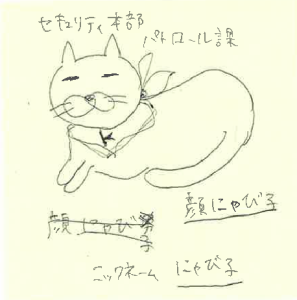 セキュリティ本部
パトロール課
K
顔にゃび子
顔にゃび
子
ニックネーム にゃび子